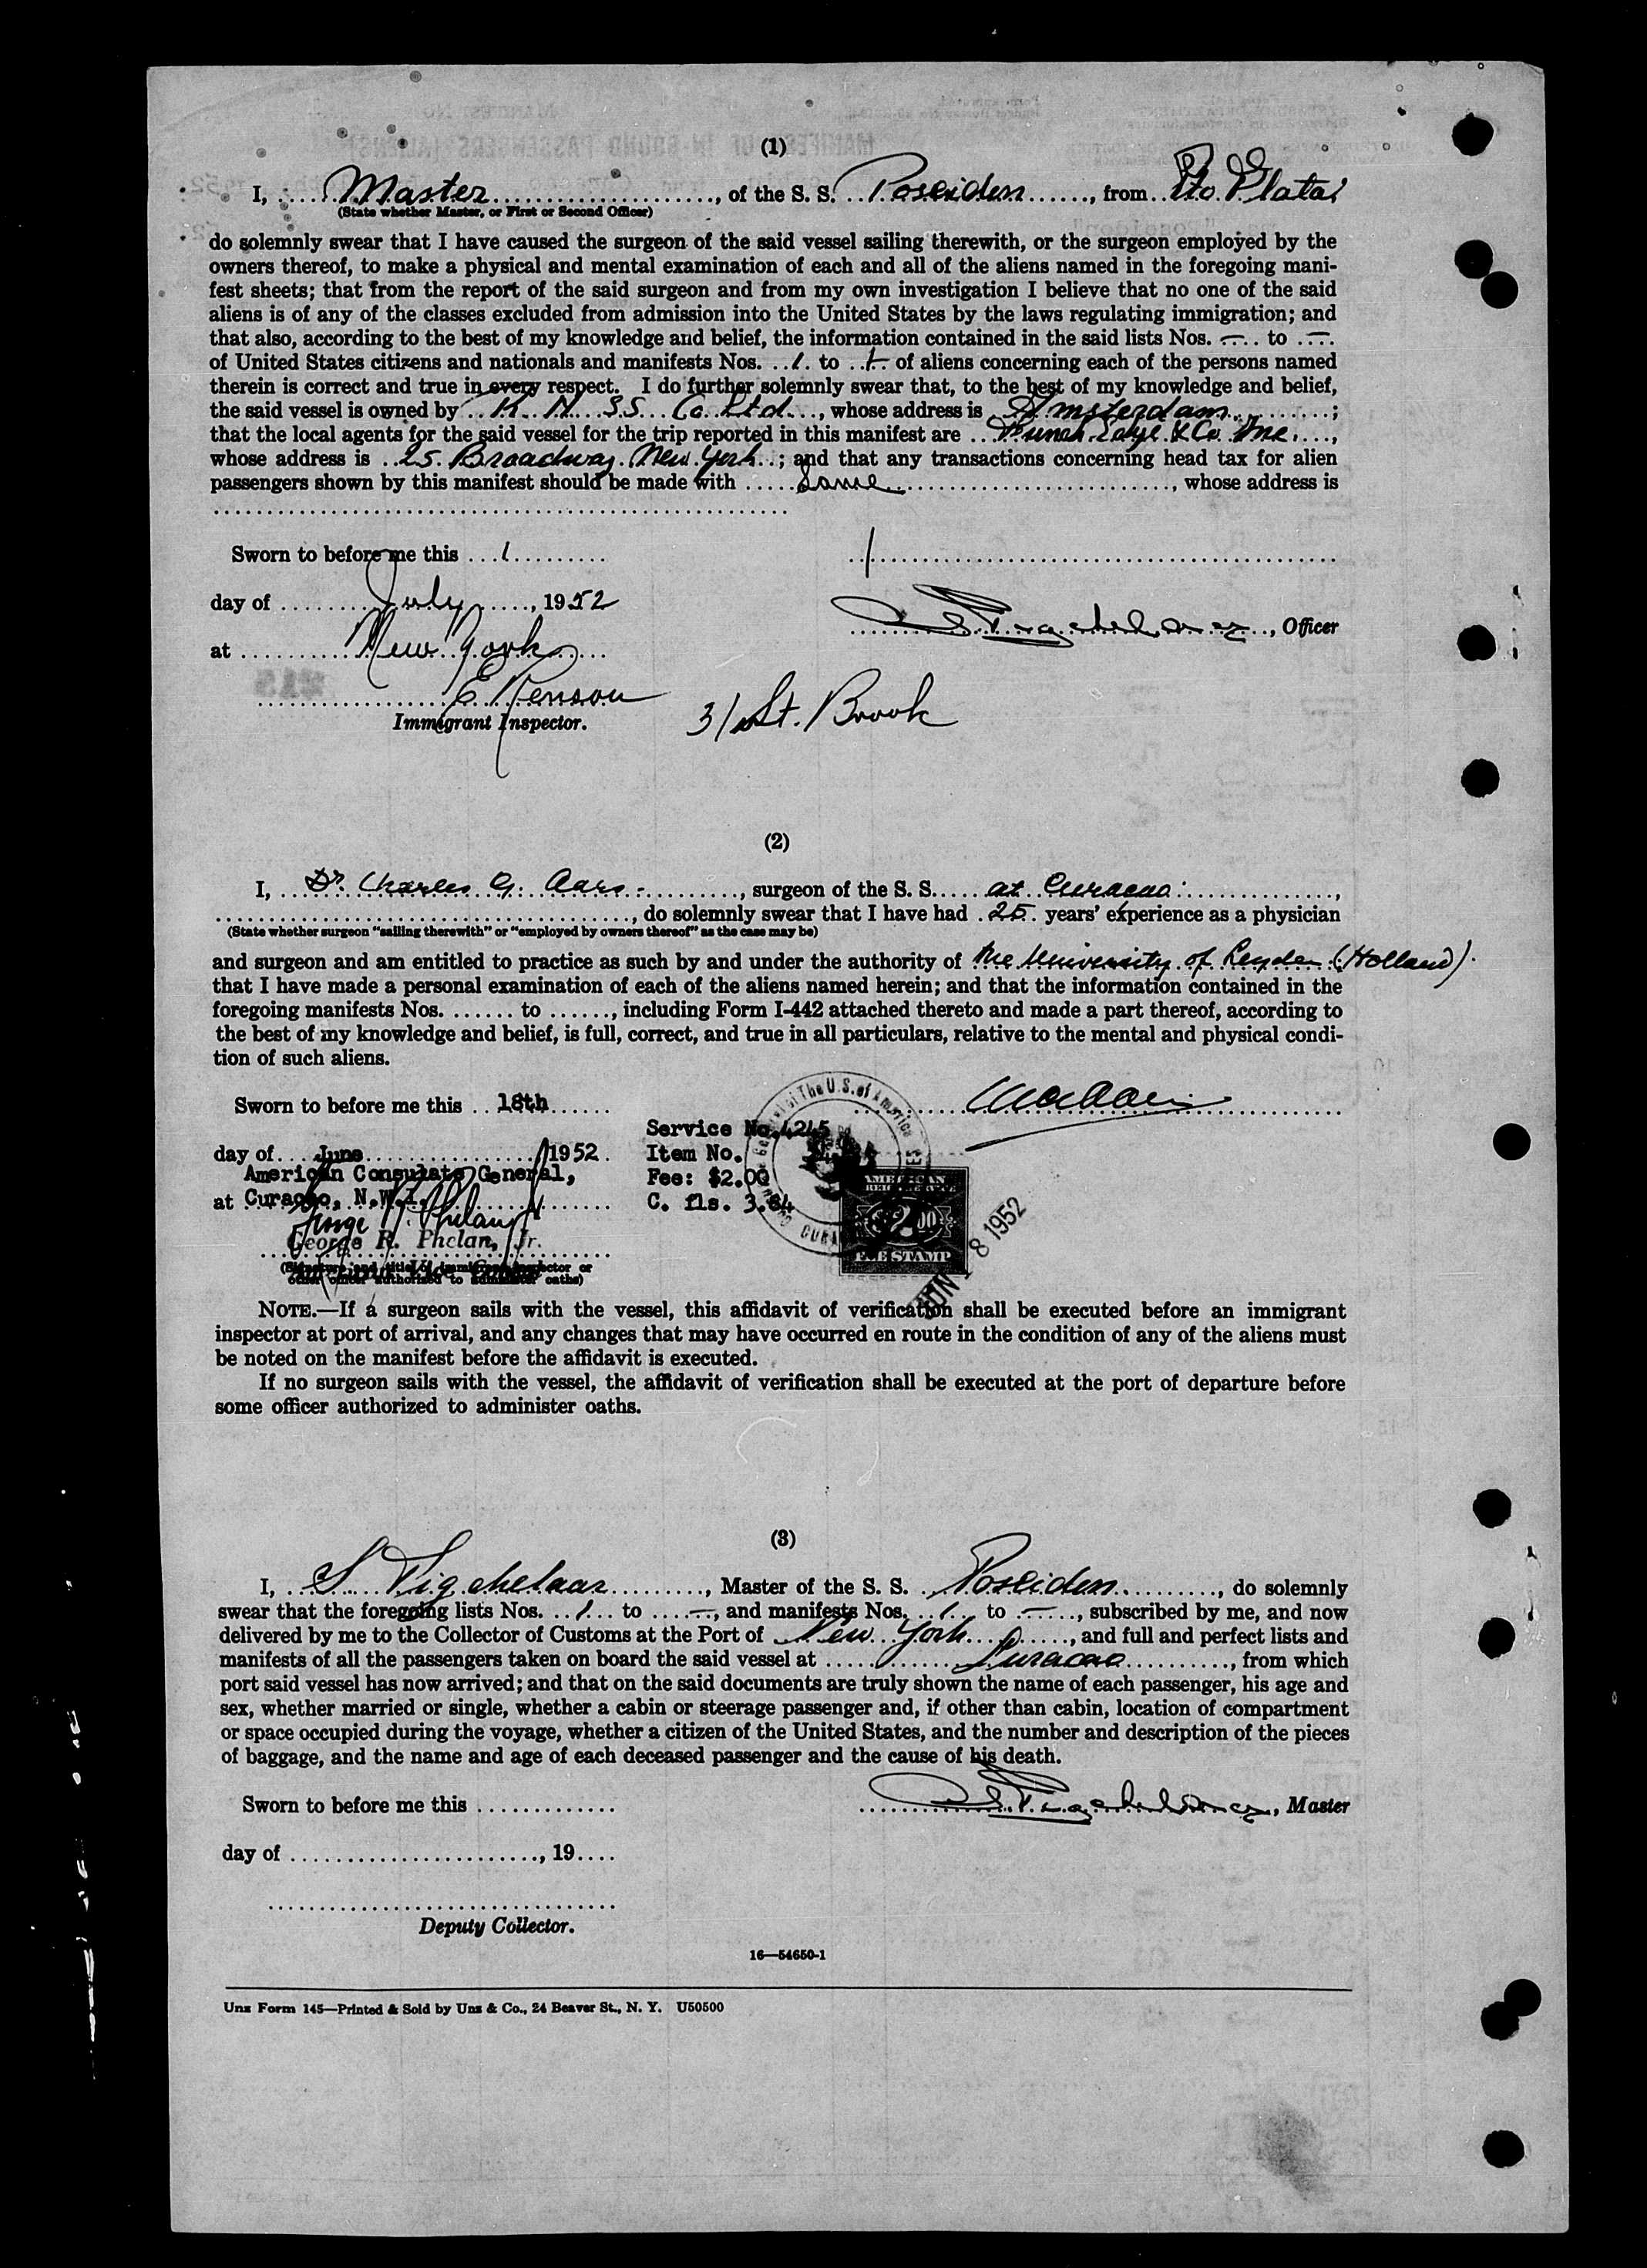 (1)
I, Master, of the S. S. Poseiden, from Pto. Plata
(State whether Master, or First or Second Officer)
do solemnly swear that I have caused the surgeon of the said vessel sailing therewith, or the surgeon employed by the
owners thereof, to make a physical and mental examination of each and all of the aliens named in the foregoing mani-
fest sheets; that from the report of the said surgeon and from my own investigation I believe that no one of the said
aliens is of any of the classes excluded from admission into the United States by the laws regulating immigration; and
that also, according to the best of my knowledge and belief, the information contained in the said lists Nos. — to —
of United States citizens and nationals and manifests Nos. 1 to 1 of aliens concerning each of the persons named
therein is correct and true in every respect. I do further solemnly swear that, to the best of my knowledge and belief,
the said vessel is owned by K. N. S.S. Co. Ltd., whose address is Amsterdam;
that the local agents for the said vessel for the trip reported in this manifest are Funch Edye & Co. Inc.,
whose address is 25 Broadway New York; and that any transactions concerning head tax for alien
passengers shown by this manifest should be made with Same, whose address is
Sworn to before me this 1
day of July, 1952
Officer
at New York
Immigrant Inspector.
31 St. Brook
(2)
I, Dr. Charles G. Aars, surgeon of the S. S. at Curacao,
do solemnly swear that I have had 25 years' experience as a physician
(State whether surgeon "sailing therewith" or "employed by owners thereof" as the case may be)
and surgeon and am entitled to practice as such by and under the authority of the University of Leyden (Holland).
that I have made a personal examination of each of the aliens named herein; and that the information contained in the
foregoing manifests Nos. ...... to ......, including Form I-442 attached thereto and made a part thereof, according to
the best of my knowledge and belief, is full, correct, and true in all particulars, relative to the mental and physical condi-
tion of such aliens.
Sworn to before me this 18th
Service No. 4245
day of June 1952
Item No.
American Consulate General,
Fee: $2.00
at Curacao, N.W.I.
C. fls. 3.64
AMERICAN
FEE STAMP
JUN 18 1952
George R. Phelan, Jr.
(Signature and title of immigrant inspector or
other officer authorized to administer oaths)
NOTE.—If a surgeon sails with the vessel, this affidavit of verification shall be executed before an immigrant
inspector at port of arrival, and any changes that may have occurred en route in the condition of any of the aliens must
be noted on the manifest before the affidavit is executed.
If no surgeon sails with the vessel, the affidavit of verification shall be executed at the port of departure before
some officer authorized to administer oaths.
(3)
I, S Tigchelaar, Master of the S. S. Poseiden, do solemnly
swear that the foregoing lists Nos. 1 to —, and manifests Nos. 1 to —, subscribed by me, and now
delivered by me to the Collector of Customs at the Port of New York, and full and perfect lists and
manifests of all the passengers taken on board the said vessel at Curacao, from which
port said vessel has now arrived; and that on the said documents are truly shown the name of each passenger, his age and
sex, whether married or single, whether a cabin or steerage passenger and, if other than cabin, location of compartment
or space occupied during the voyage, whether a citizen of the United States, and the number and description of the pieces
of baggage, and the name and age of each deceased passenger and the cause of his death.
Sworn to before me this
S. Tigchelaar, Master
day of ........, 19....
Deputy Collector.
16—54650-1
Unz Form 145—Printed & Sold by Unz & Co., 24 Beaver St., N. Y. U50500